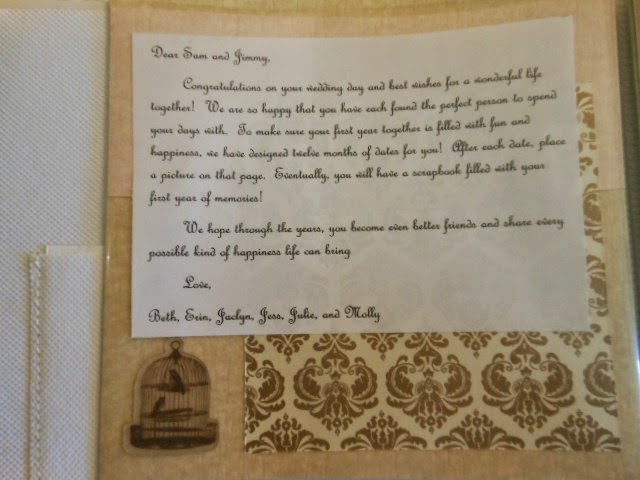 Dear Sam and Jimmy,
Congratulations on your wedding day and best wishes for a wonderful life
together! We are so happy that you have each found the perfect person to spend
your days with. To make sure your first year together is filled with fun and
happiness, we have designed twelve months of dates for you! After each date, place
a picture on that page. Eventually, you will have a scrapbook filled with your
first year of memories!
We hope through the years, you become even better friends and share every
possible kind of happiness life can bring
Love,
Beth, Erin, Jaclyn, Jess, Julie, and Molly